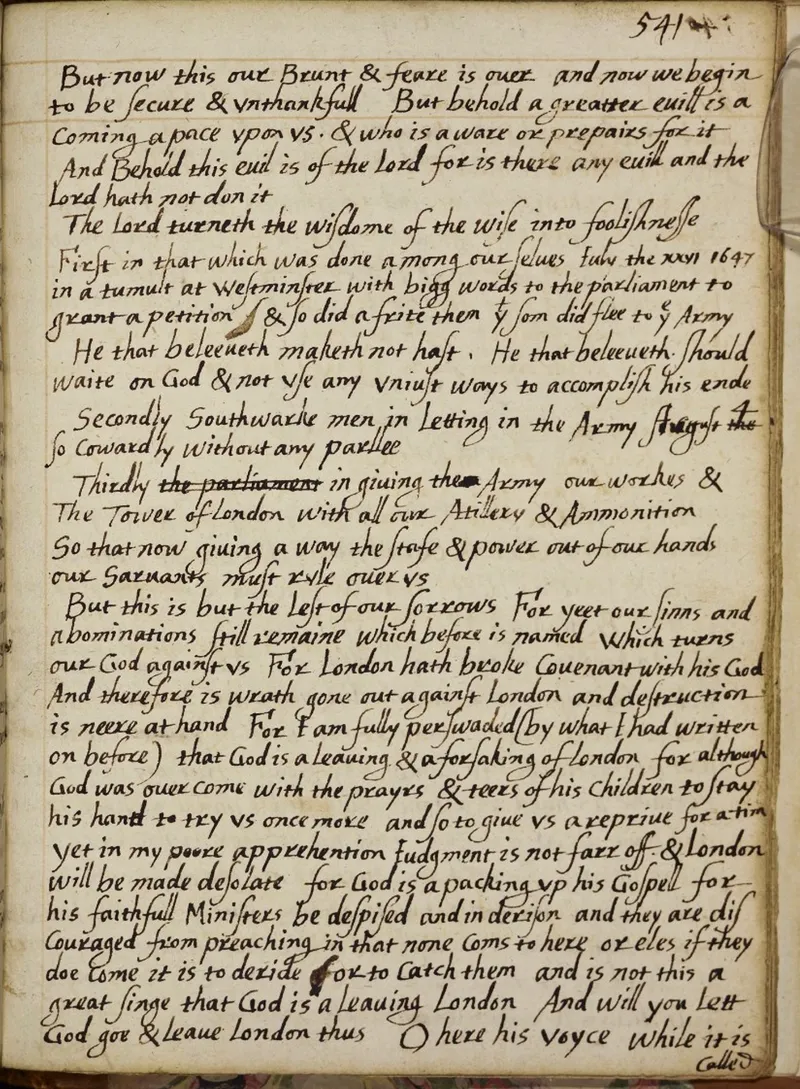 541
But now this our Brunt & feare is ouer and now we begin
to be secure & vnthankfull But behold a greatter euill is a
Coming a pace vpon vs . & who is a ware or prepairs for it
And Behold this euil is of the Lord for is there any euill and the
Lord hath not don it
The Lord turneth the wisdome of the wise into foolishnesse
First in that which was done among our selues July the xxvi 1647
in a tumult at Westminster with bigg words to the parliament to
grant a petition & so did a frite them yt som did flee to ye Army
He that beleeueth maketh not hast . He that beleeueth should
waite on God & not vse any vniust ways to accomplish his ende
Secondly Southwarke men in Letting in the Army August the 4
so Cowardly without any parlee
Thirdly the parliament in giving the Army our workes &
The Tower of London with all our Atillery & Ammonition
So that now giuing a way the stafe & power out of our hands
our Saruants must rvle ouer vs
But this is but the Lest of our sorrows For yeet our sinns and
abominations still remaine which before is named Which turns
our God against vs For London hath broke Couenant with his God
And therefore is wrath gone out against London and destruction
is neere at hand For I am fully perswaded (by what I had written
on before) that God is a leauing & a forsaking of london for although
God was ouer come with the prayrs & teers of his Children to stay
his hand to try vs once more and so to giue vs a reprive for a tim
yet in my poore apprehention Judgment is not farr off & London
will be made desolate for God is a packing vp his Gospell for
his faithfull Ministers be despised and in derison and they are dis
Couraged from preaching in that none Coms to here or eles if they
doe Come it is to deride or to Catch them and is not this a
great singe that God is a leauing London And will you Lett
God goe & leaue London thus O here his voyce While it is
Called